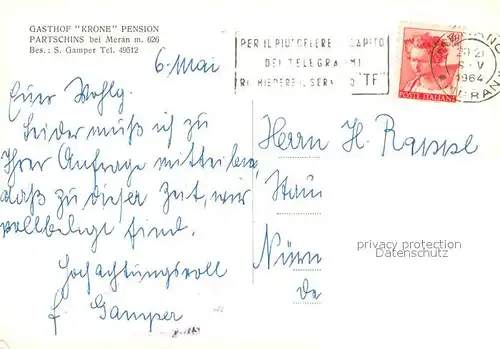 GASTHOF "KRONE" PENSION
PARTSCHINS bei Meran m. 626
Bes.: S. Gamper Tel. 49512
PER IL PIU' CELERE RECAPITO
DEI TELEGRAMMI
RICHIEDERE IL SERVIZIO "TF"
20-21
6-V
1964
POSTE ITALIANE
6. Mai
Euer Wohlg.
Leider muß ich zu
Ihrer Anfrage mitteilen,
daß zu dieser Zeit, wir
vollbelegt sind.
Hochachtungsvoll
f. Gamper
Herrn H. Rappl
Nürn
de
privacy protection
Datenschutz